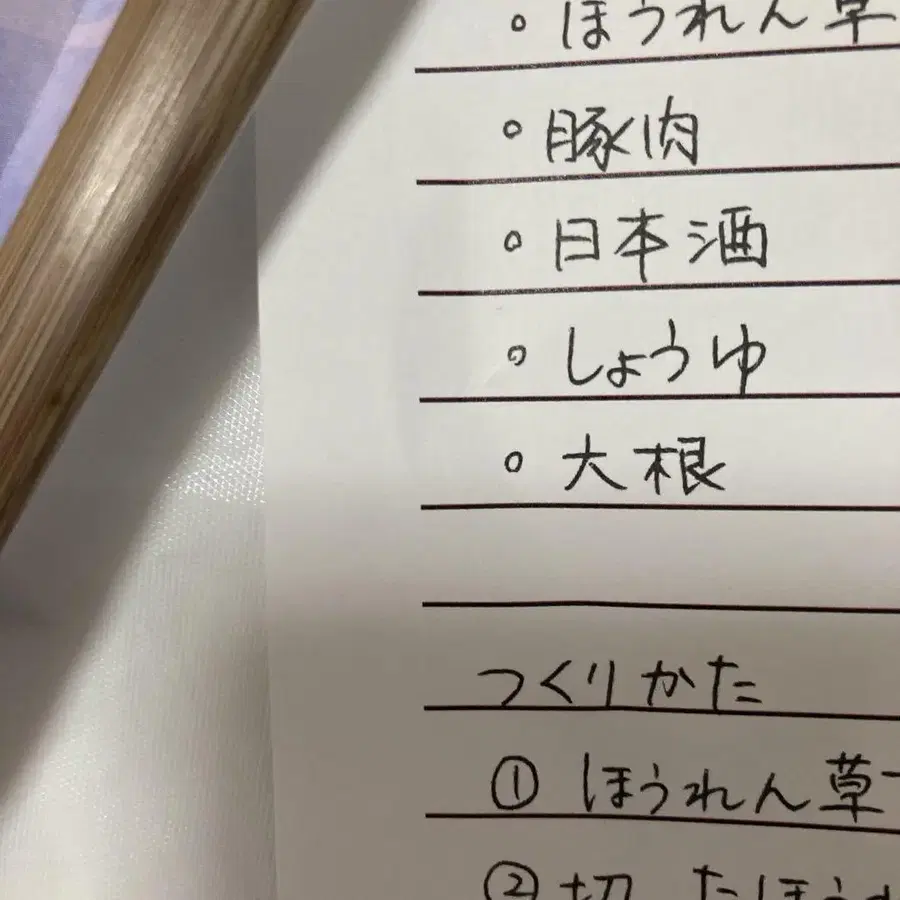 。ほうれん草
。豚肉
。日本酒
。しょうゆ
。大根
つくりかた
① ほうれん草
② 切ったほうれ